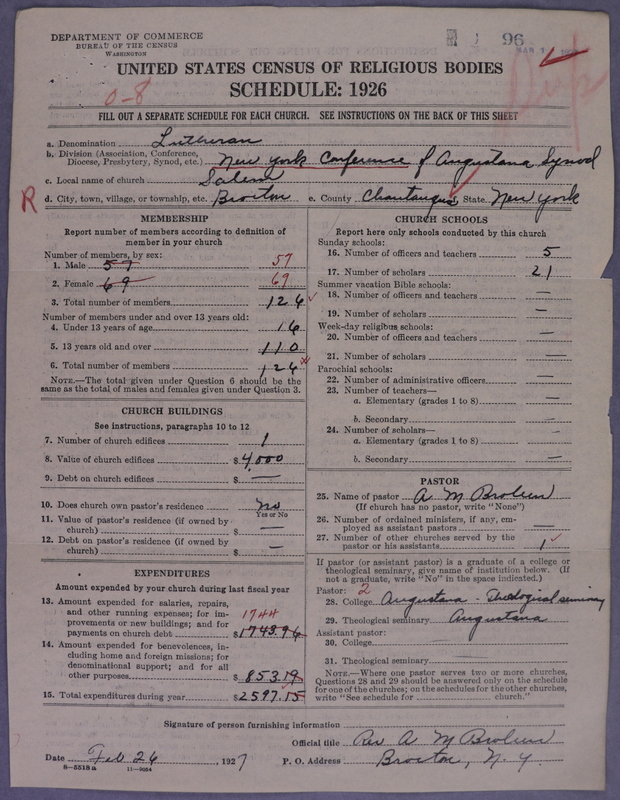 DEPARTMENT OF COMMERCE
BUREAU OF THE CENSUS
WASHINGTON
96
UNITED STATES CENSUS OF RELIGIOUS BODIES
SCHEDULE: 1926
0-8
FILL OUT A SEPARATE SCHEDULE FOR EACH CHURCH. SEE INSTRUCTIONS ON THE BACK OF THIS SHEET
a. Denomination Lutheran
b. Division (Association, Conference, Diocese, Presbytery, Synod, etc.) New York Conference of Augustana Synod
c. Local name of church Salem
R d. City, town, village, or township, etc. Brocton e. County Chautauqua State New York
MEMBERSHIP
Report number of members according to definition of
member in your church
Number of members, by sex:
1. Male 57 57
2. Female 69 69
3. Total number of members 126
Number of members under and over 13 years old:
4. Under 13 years of age 16
5. 13 years old and over 110
6. Total number of members 126
NOTE.—The total given under Question 6 should be the
same as the total of males and females given under Question 3.
CHURCH BUILDINGS
See instructions, paragraphs 10 to 12
7. Number of church edifices 1
8. Value of church edifices $ 4,000
9. Debt on church edifices $ —
10. Does church own pastor's residence No
Yes or No
11. Value of pastor's residence (if owned by
church) $ —
12. Debt on pastor's residence (if owned by
church) $ —
EXPENDITURES
Amount expended by your church during last fiscal year
13. Amount expended for salaries, repairs,
and other running expenses; for im-
provements or new buildings; and for
payments on church debt $ 1743.96
1744
14. Amount expended for benevolences, in-
cluding home and foreign missions; for
denominational support; and for all
other purposes $ 853.19
15. Total expenditures during year $ 2597.15
CHURCH SCHOOLS
Report here only schools conducted by this church
Sunday schools:
16. Number of officers and teachers 5
17. Number of scholars 21
Summer vacation Bible schools:
18. Number of officers and teachers —
19. Number of scholars —
Week-day religious schools:
20. Number of officers and teachers —
21. Number of scholars —
Parochial schools:
22. Number of administrative officers —
23. Number of teachers—
a. Elementary (grades 1 to 8) —
b. Secondary —
24. Number of scholars—
a. Elementary (grades 1 to 8) —
b. Secondary —
PASTOR
25. Name of pastor A M Broleen
(If church has no pastor, write "None")
26. Number of ordained ministers, if any, em-
ployed as assistant pastors —
27. Number of other churches served by the
pastor or his assistants 1
If pastor (or assistant pastor) is a graduate of a college or
theological seminary, give name of institution below. (If
not a graduate, write "No" in the space indicated.)
Pastor: 2
28. College Augustana - Theological seminary
29. Theological seminary Augustana
Assistant pastor:
30. College
31. Theological seminary
NOTE.—Where one pastor serves two or more churches,
Questions 28 and 29 should be answered only on the schedule
for one of the churches; on the schedules for the other churches,
write "See schedule for church."
Signature of person furnishing information
Official title Rev A M Broleen
Date Feb 26, 1927 P. O. Address Brocton, N. Y.
8—5518 a 11—9064